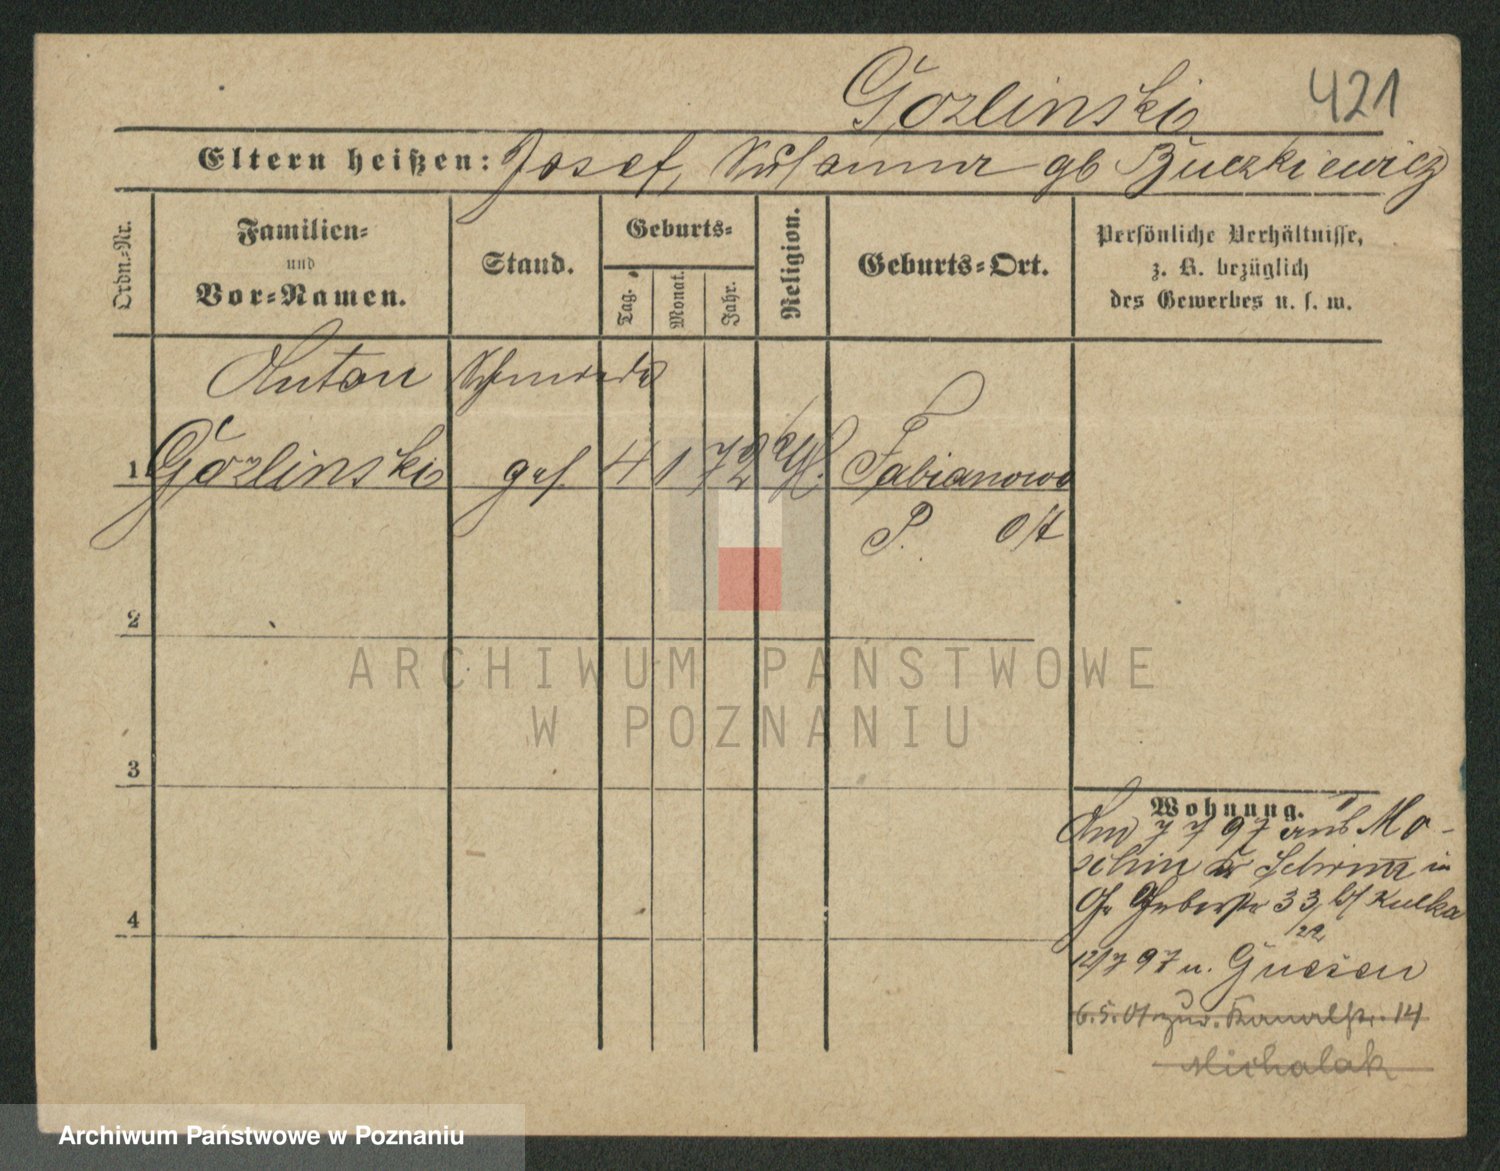 Gozlinski
421
Eltern heißen: Josef, Susanna gb Buczkiewicz
Ordn.-Nr.
Familien- und Vor-Namen.
Stand.
Geburts-
Tag.
Monat.
Jahr.
Religion.
Geburts-Ort.
Persönliche Verhältnisse, z. B. bezüglich des Gewerbes u. s. w.
Anton Schmiede
1 Gozlinski ges 4 1 72 kth. Fabianowo
P. Ost
2
ARCHIWUM PAŃSTWOWE
W POZNANIU
3
Wohnung.
Am 7 7 97 aus Mo-
schin Kr Schrimm in
Gr Gerberstr 33, bei Kulka
4
12/7 97 n. Gnesen
6.5.01 zur. Kanalstr. 14
Michalak
Archiwum Państwowe w Poznaniu